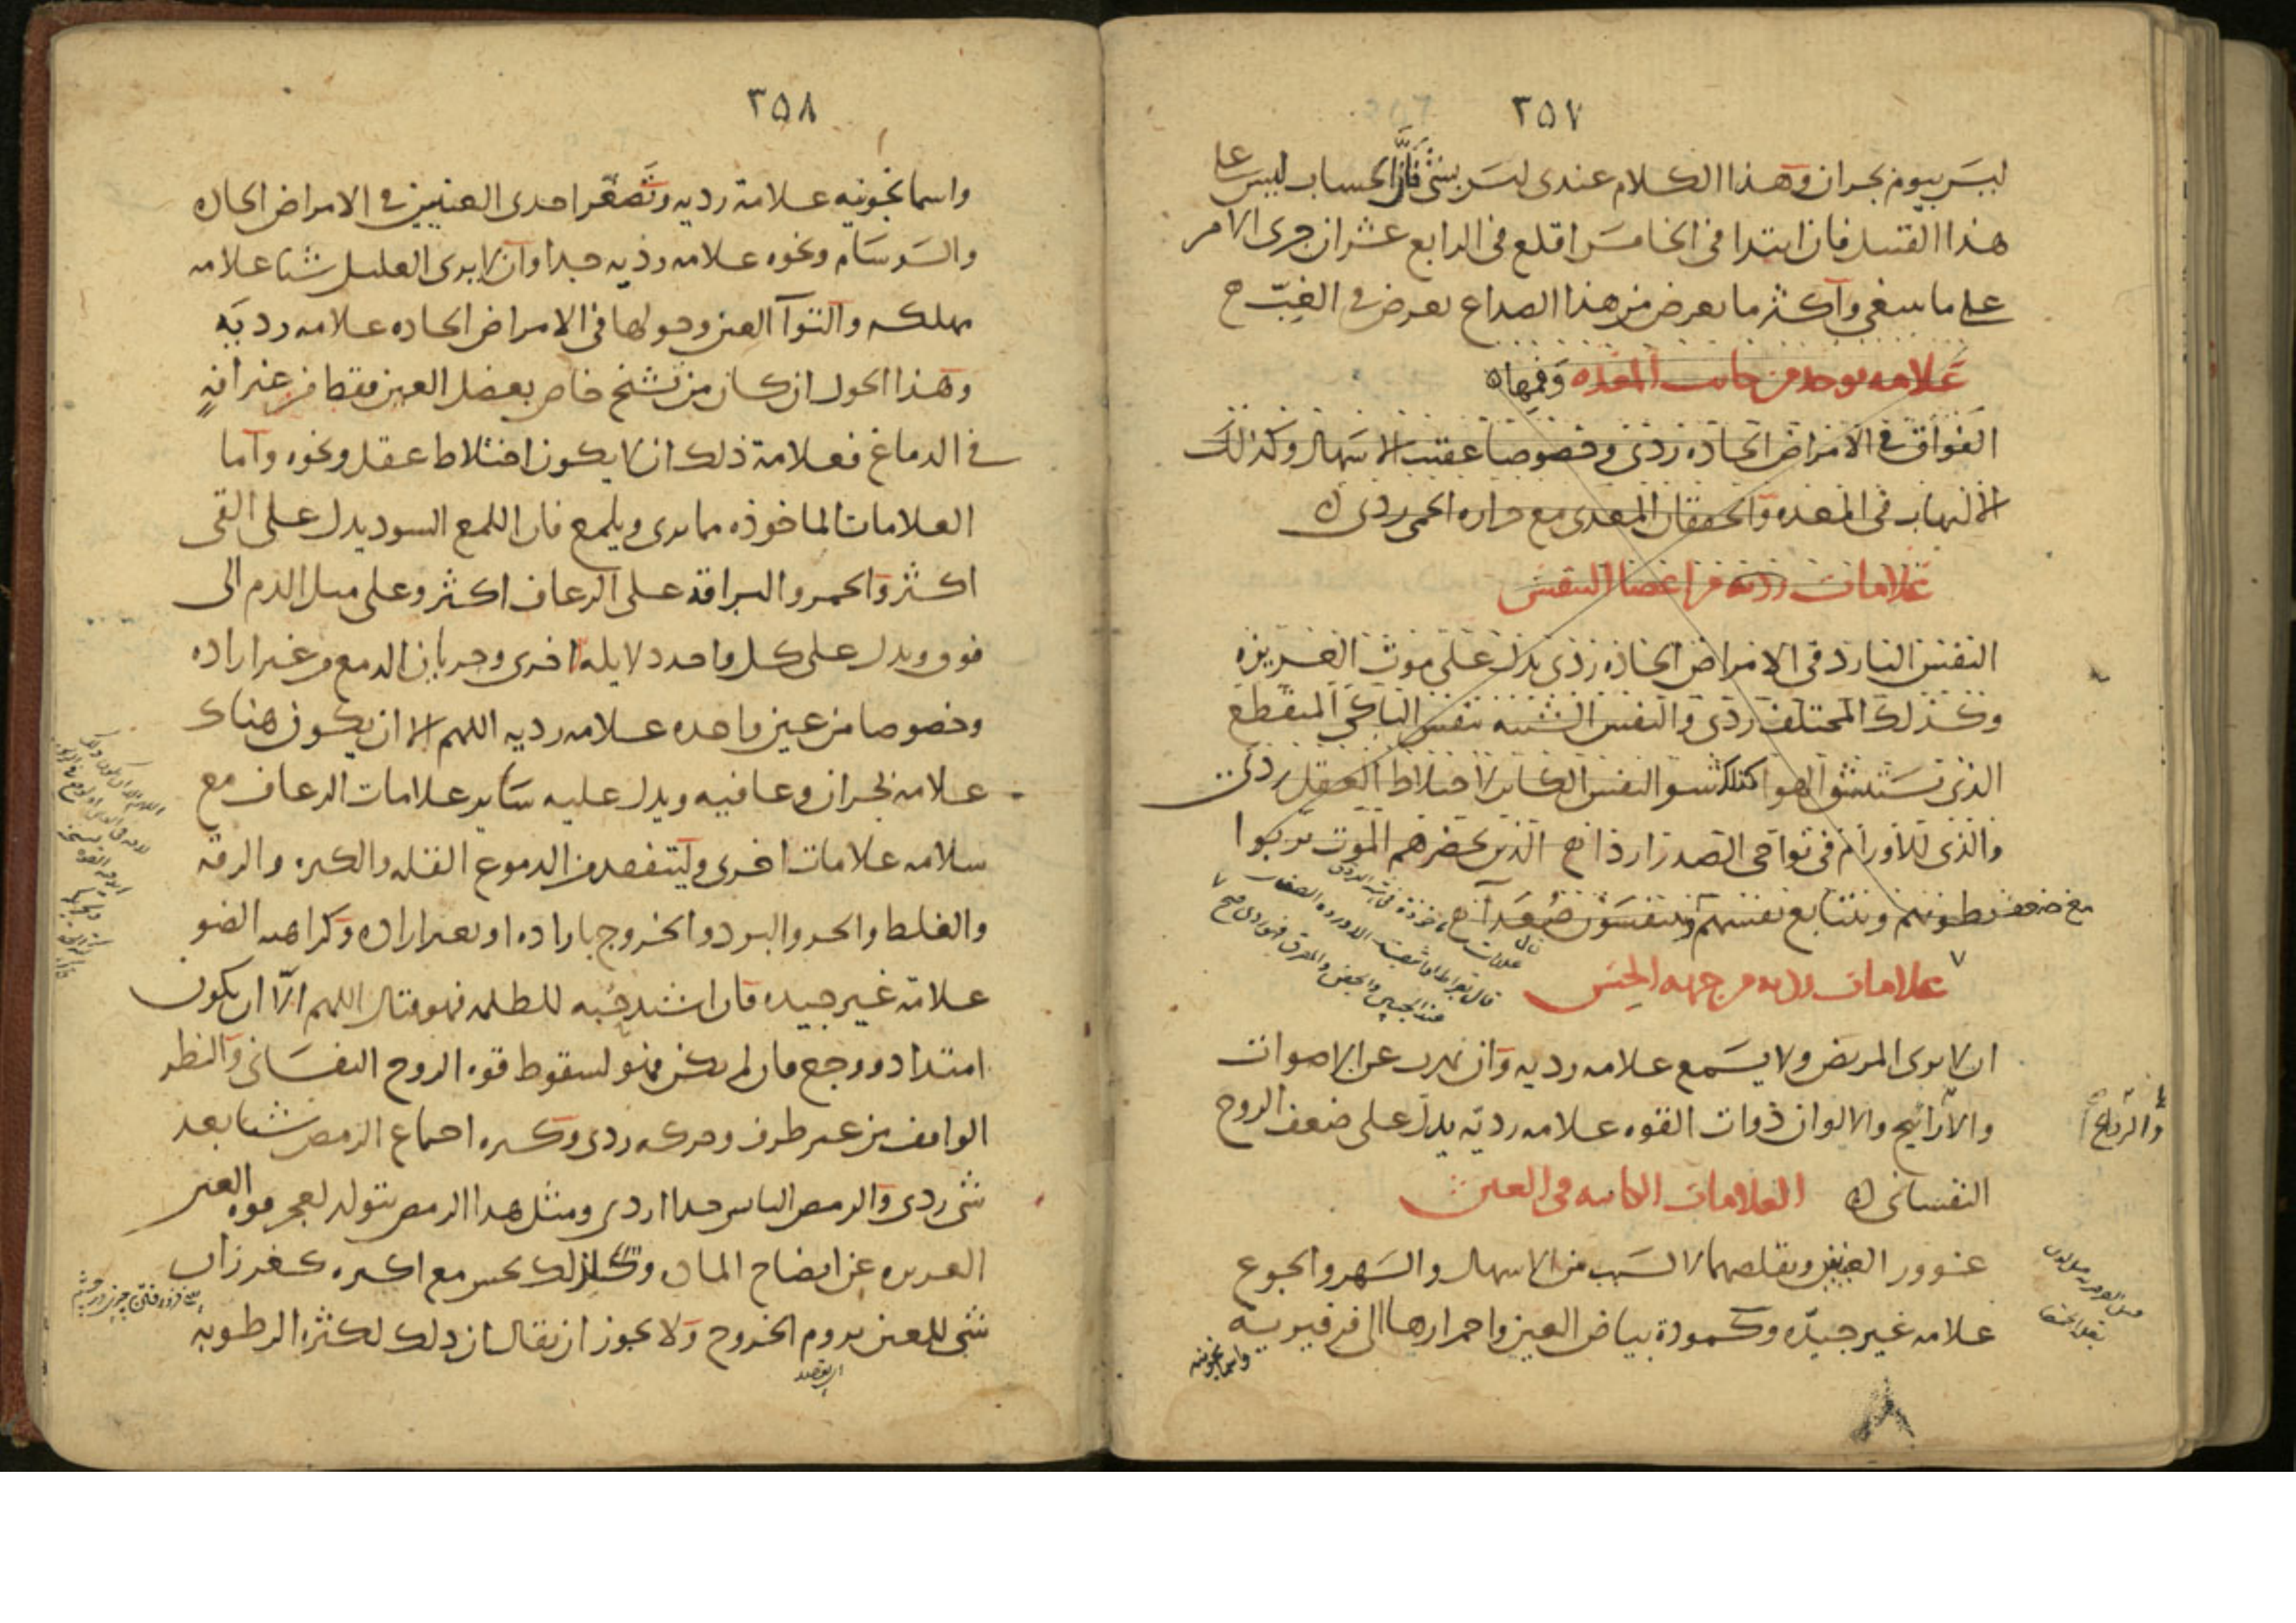 ٣٥٧
ليس بيوم بحران وهذا الكلام عندى ليس بشى فان الحساب ليس على
هذا القبيل فان ابتدا فى الخامس اقلع فى الرابع عشر ان جرى الامر
على ما ينبغى واكثر ما يعرض من هذا الصداع يعرض فى الغب
علامه توجد من جانب المعده وفمها
الفواق فى الامراض الحاده ردى وخصوصا عقيب الاسهال وكذلك
الالتهاب فى المعده والخفقان المعدى مع حراره الحمى ردى
علامات رديه من اعضا التنفس
النفس البارد فى الامراض الحاده ردى يدل على موت الغريزه
وكذلك المختلف ردى والنفس الشبيه بنفس الباكى المنقطع
الذى يستنشق الهوا والنفس الكاين لاختلاط العقل ردى
والذى للاورام فى نواحى الصدر اردا الذين يحضرهم الموت تربوا
بطونهم ويتتابع نفسهم ويتنفسون صعدا
علامات رديه من جهه الحس
ان لا يرى المريض ولا يسمع علامه رديه وان يهرب عن الاصوات
والاراييح والالوان ذوات القوه علامه رديه يدل على ضعف الروح
النفسانى العلامات الكاينه فى العين
غوور العينين وتقلصهما لا لسبب من الاسهال والسهر والجوع
علامه غير جيده وكمودة بياض العين واحمرارها الى فرفيريه
واسمانجونيه
٣٥٨
واسمانجونيه علامة رديه وتصغر احدى العينين فى الامراض الحاده
والسرسام ونحوه علامه رديه جدا وان لا يرى العليل شيا علامه
مهلكه والتوآ العين وحولها فى الامراض الحاده علامه رديه
وهذا الحول ان كان من تشنج خاص بعضل العين فقط من غير افه
فى الدماغ فعلامة ذلك ان لا يكون اختلاط عقل ونحوه واما
العلامات الماخوذه مما يرى ويلمع فان اللمع السود يدل على القى
اكثر والحمر والبراقه على الرعاف اكثر وعلى ميل الدم الى
فوق ويدل على كل واحد دلايله اخرى وجريان الدمع من غير اراده
وخصوصا من عين واحده علامه رديه اللهم الا ان يكون هناك
علامة بحران وعافيه ويدل عليه ساير علامات الرعاف مع
سلامه علامات اخرى وليتفقد من الدموع القله والكبره والرقه
والغلظ والحر والبرد والخروج باراده او بغير اراده وكراهه الضو
علامة غير جيده فان اشتد حبه للظلمه فهو قتال اللهم الا ان يكون
امتداد ووجع فان لم يكن فهو لسقوط قوه الروح النفسانى والنظر
الواقف من غير طرف وحركه ردى وكثره اجتماع الرمص شيا بعد
شى ردى والرمص اليابس جدا اردى ومثل هذا الرمص يتولد لعجز قوه العين
الغريزه عن انضاج الماده وكذلك يحس مع اكثره كغرزان
شى للعين يروم الخروج ولا يجوز ان يقال ان ذلك لكثرة الرطوبه